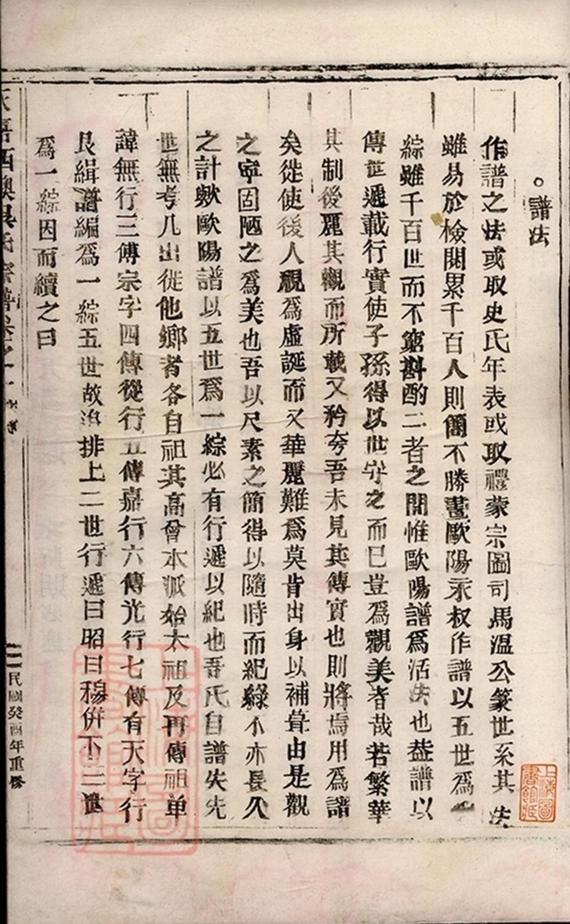 。譜法
作譜之法或取史氏年表或取禮蒙宗圖司馬溫公篆世系其法
雖易於檢閱累千百人則簡不勝畫歐陽永叔作譜以五世為一
綜雖千百世而不窮斟酌二者之間惟歐陽譜為活法也益譜以
傳世遞載行實使子孫得以世守之而已豈為觀美者哉若繁華
其制後麗其觀而所載又矜夸吾未見其傳實也則將焉用為譜
矣徙使後人視為虛誕而又華麗難為莫肯出身以補葺由是觀
之寧固陋之為美也吾以尺素之簡得以隨時而紀錄不亦長久
之計歟歐陽譜以五世為一綜必有行遞以紀也吾氏自譜失先
世無考凡出徙他鄉者各自祖其高曾本派始太祖及再傳祖单
諱無行三傳宗字四傳從行五傳嘉行六傳光行七傳有天字行
艮緝譜編為一綜五世故追排上二世行遞曰昭曰穆併下三世
為一綜因而續之曰
西澳吳氏宗譜卷之一
民國癸酉年重修
上海圖書館藏